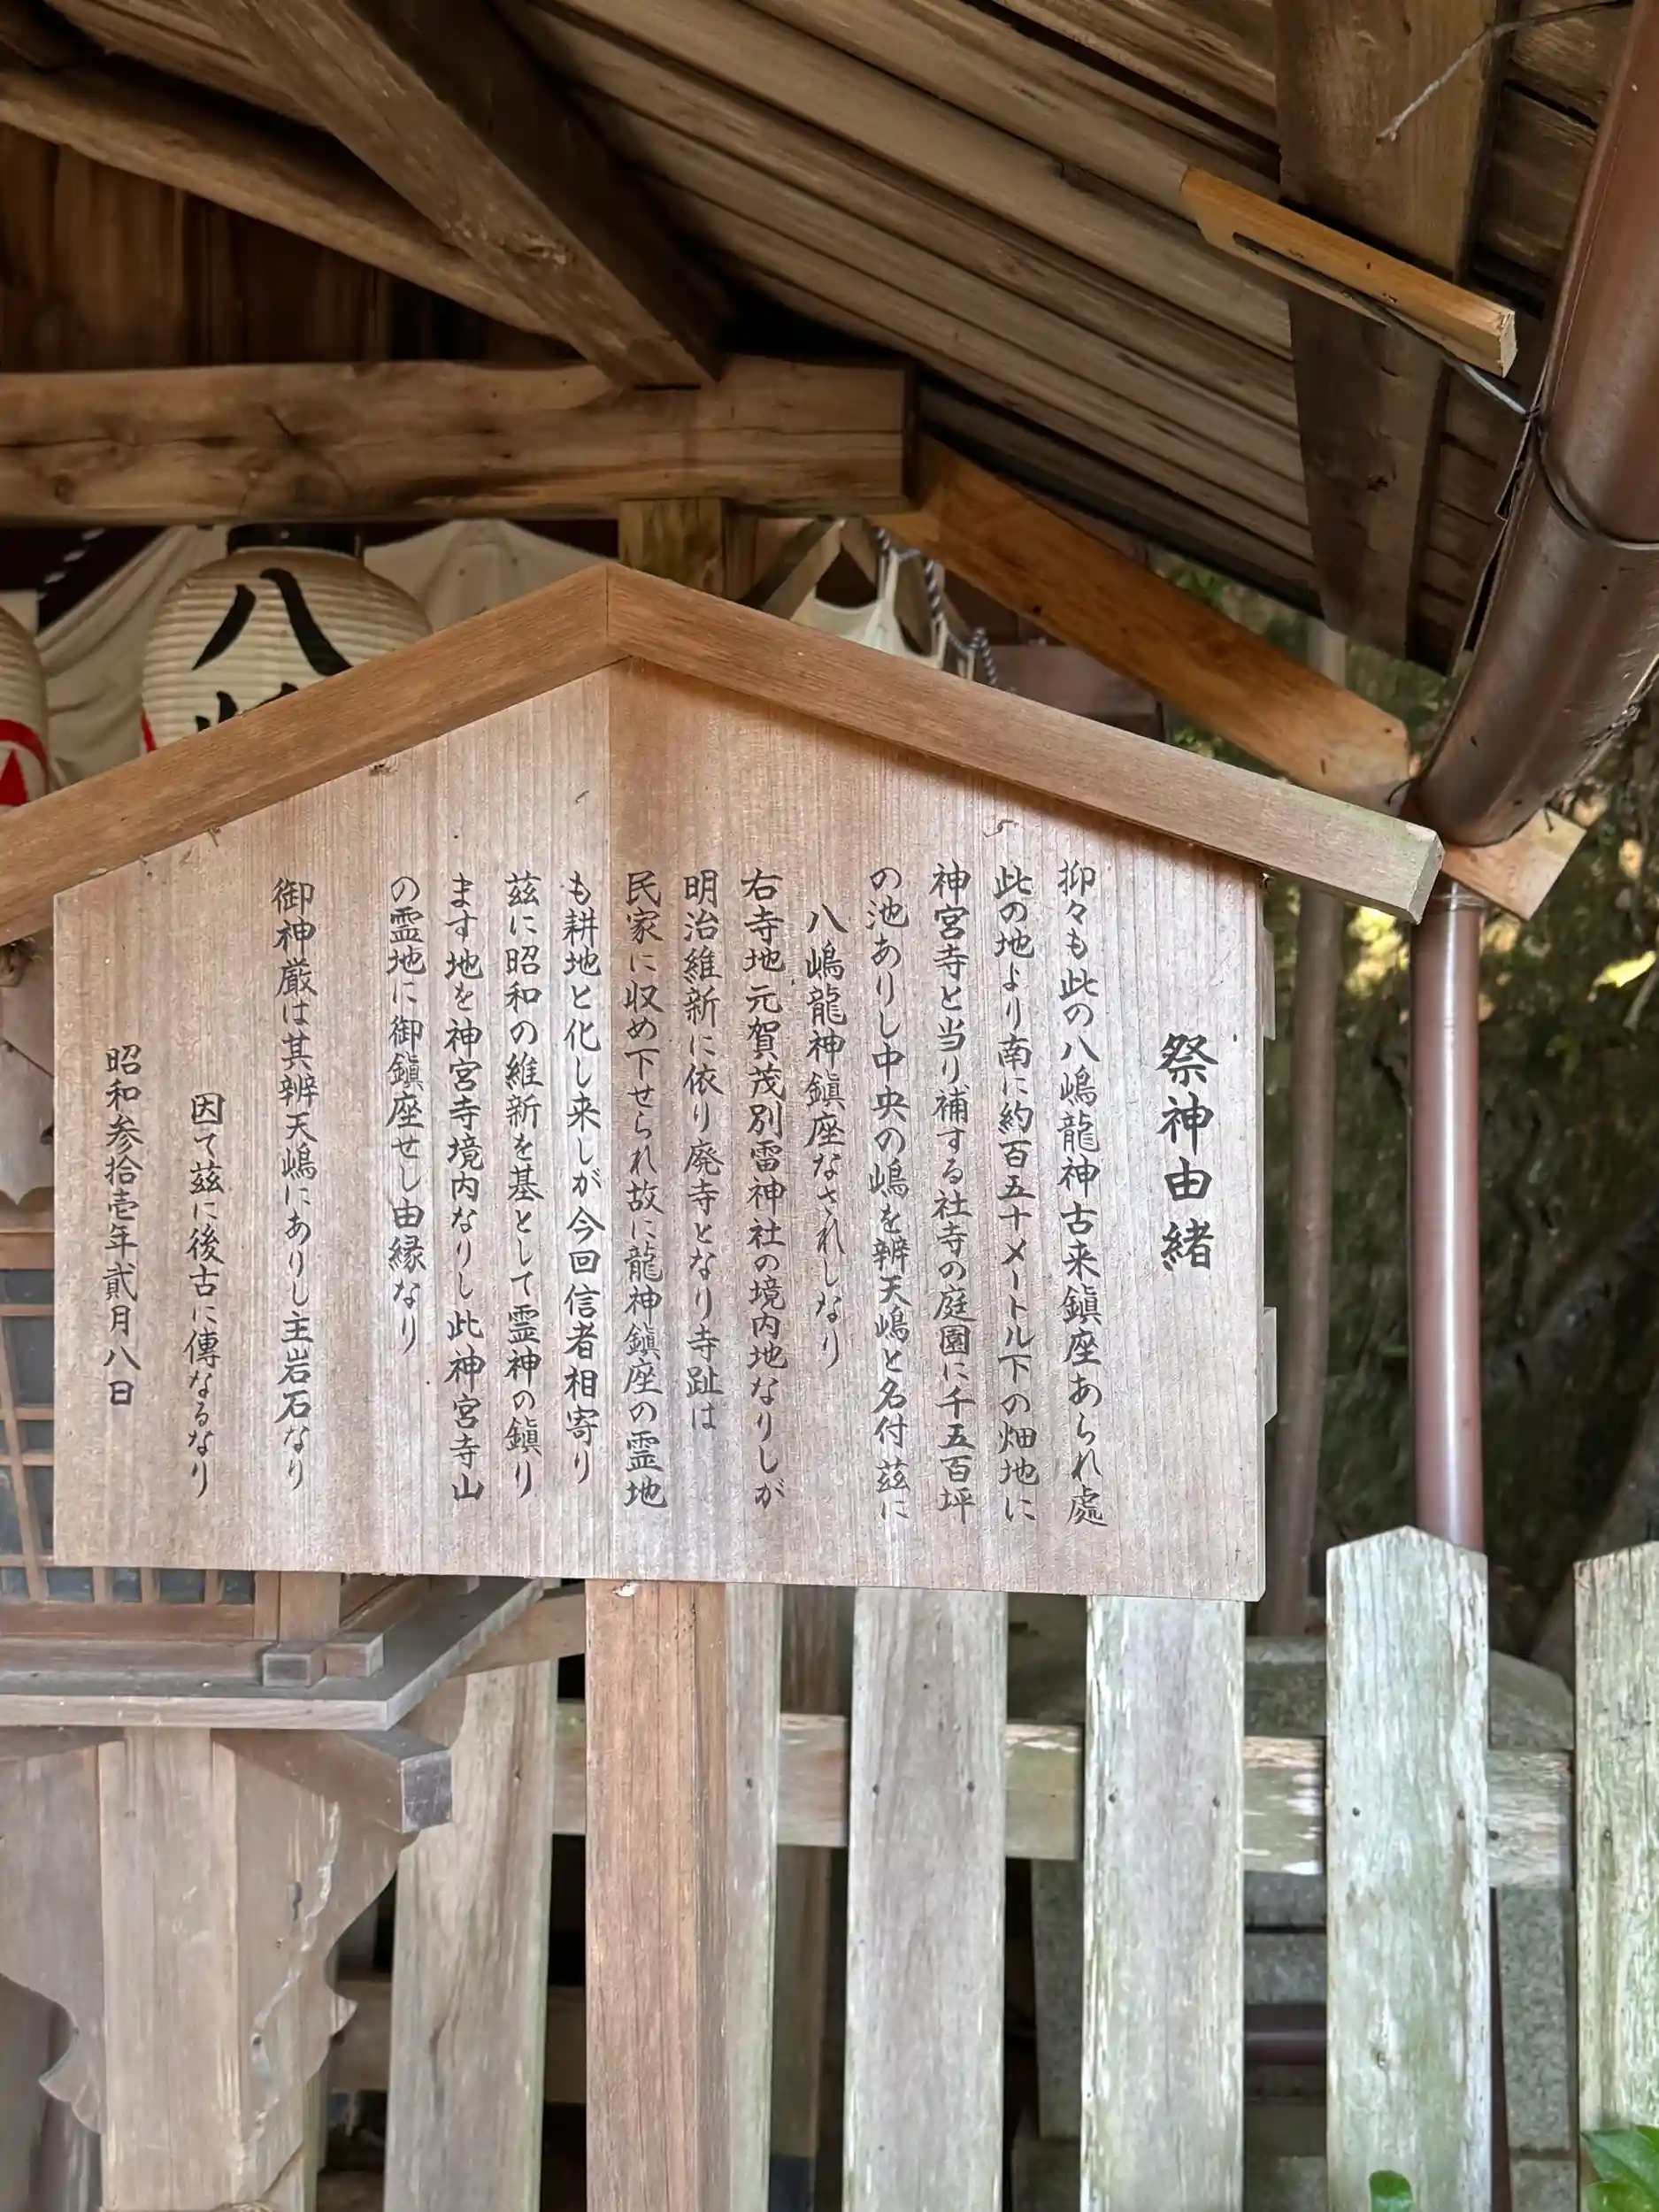 祭神由緒
抑々も此の八嶋龍神古来鎮座あられ處
此の地より南に約百五十メートル下の畑地に
神宮寺と当り補する社寺の庭園に千五百坪
の池ありし中央の嶋を辨天嶋と名付茲に
八嶋龍神鎮座なされしなり
右寺地元賀茂別雷神社の境内地なりしが
明治維新に依り廃寺となり寺趾は
民家に収め下せられ故に龍神鎮座の霊地
も耕地と化し来しが今回信者相寄り
茲に昭和の維新を基として霊神の鎮り
ます地を神宮寺境内なりし此神宮寺山
の霊地に御鎮座せし由縁なり
御神厳は其辨天嶋にありし主岩石なり
因て茲に後古に傳なるなり
昭和参拾壱年貳月八日
八